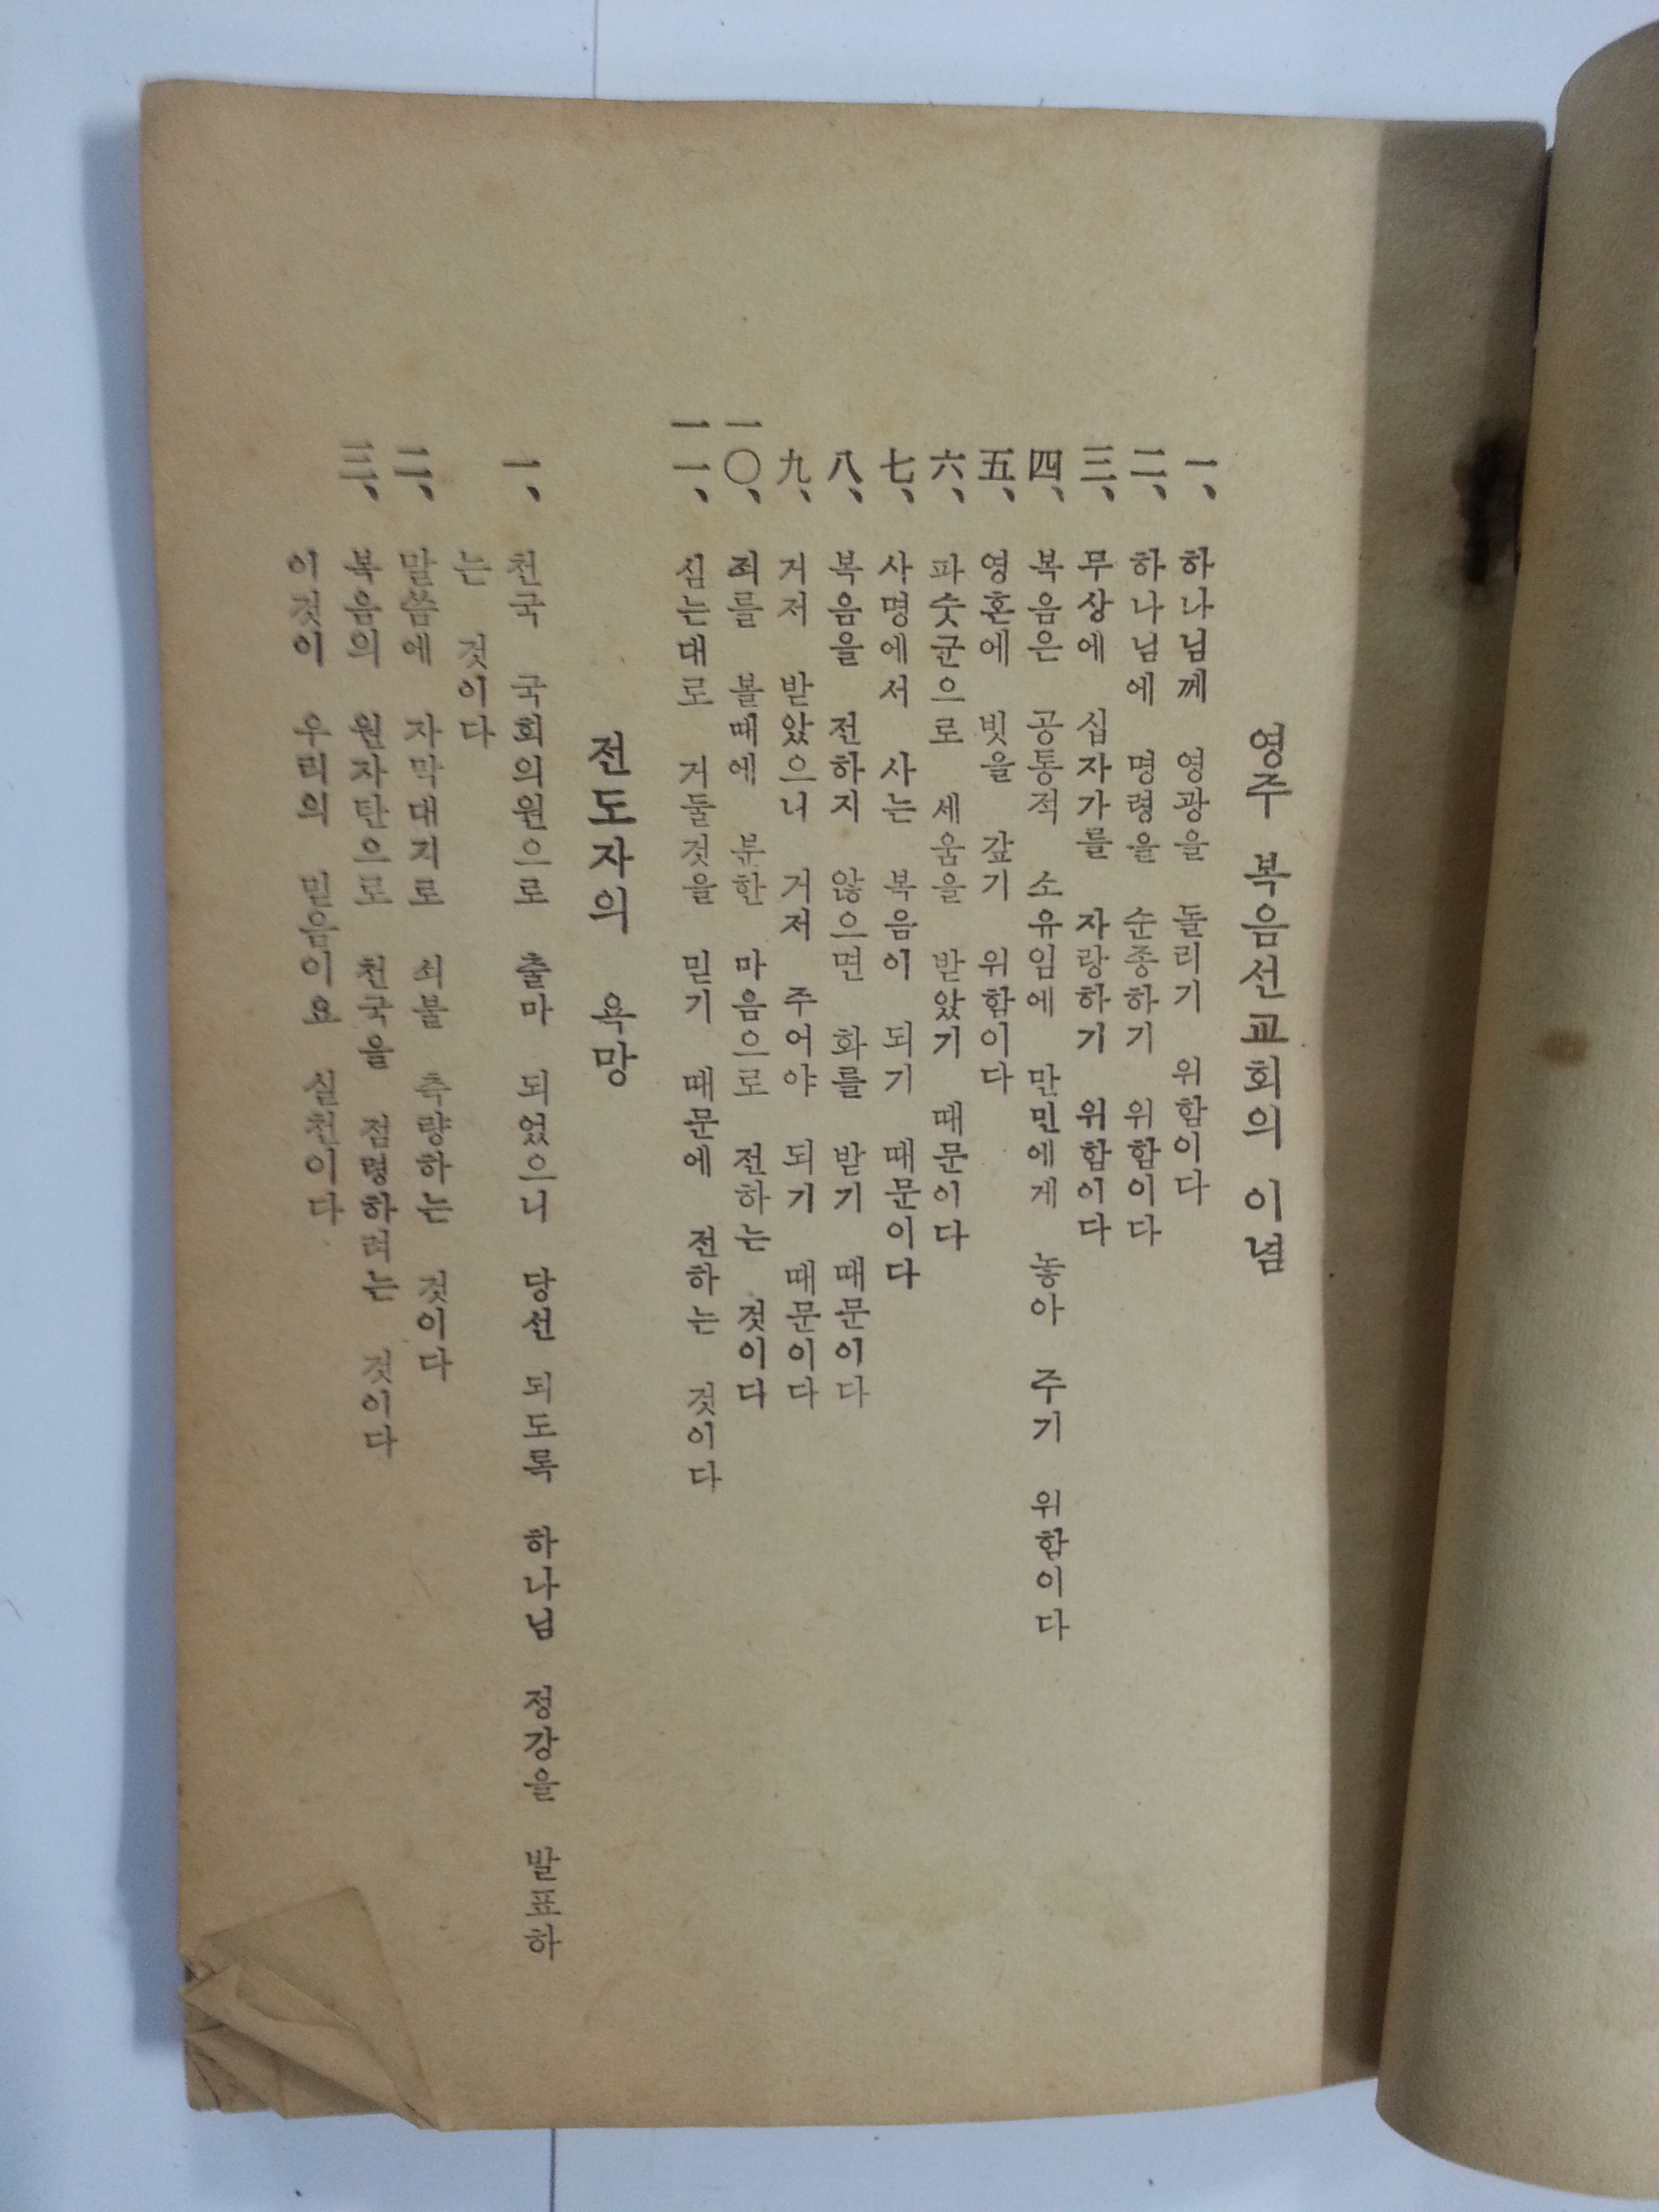 영주 복음선교회의 이념
一、 하나님께 영광을 돌리기 위함이다
二、 하나님에 명령을 순종하기 위함이다
三、 무상에 십자가를 자랑하기 위함이다
四、 복음은 공통적 소유임에 만민에게 놓아 주기 위함이다
五、 영혼에 빗을 갚기 위함이다
六、 파숫군으로 세움을 받았기 때문이다
七、 사명에서 사는 복음이 되기 때문이다
八、 복음을 전하지 않으면 화를 받기 때문이다
九、 거저 받았으니 거저 주어야 되기 때문이다
一〇、 죄를 볼때에 분한 마음으로 전하는 것이다
一一、 심는대로 거둘것을 믿기 때문에 전하는 것이다
전도자의 욕망
一、 천국 국회의원으로 출마 되었으니 당선 되도록 하나님 정강을 발표하
는 것이다
二、 말씀에 자막대기로 쇠불 측량하는 것이다
三、 복음의 원자탄으로 천국을 점령하려는 것이다
이것이 우리의 믿음이요 실천이다